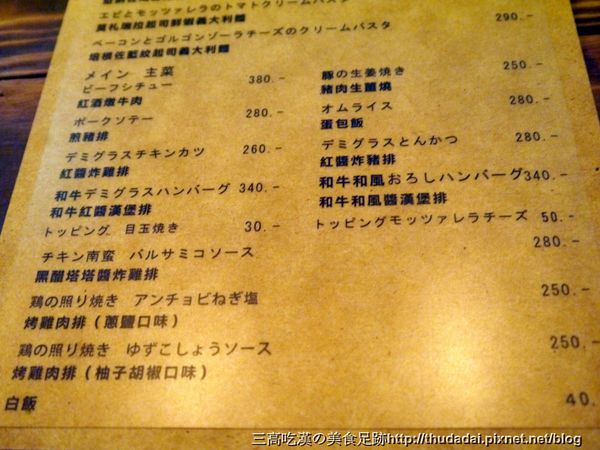 エビとモッツァレラのトマトクリームパスタ
莫札瑞拉起司鮮蝦義大利麵 290.-
ベーコンとゴルゴンゾーラチーズのクリームパスタ
培根佐藍紋起司義大利麵
メイン 主菜
ビーフシチュー 380.-
紅酒燉牛肉
ポークソテー 280.-
煎豬排
デミグラスチキンカツ 260.-
紅醬炸雞排
和牛デミグラスハンバーグ 340.-
和牛紅醬漢堡排
トッピング 目玉焼き 30.-
豚の生姜焼き 250.-
豬肉生薑燒
オムライス 280.-
蛋包飯
デミグラスとんかつ 280.-
紅醬炸豬排
和牛和風おろしハンバーグ 340.-
和牛和風醬漢堡排
トッピングモッツァレラチーズ 50.-
チキン南蛮 バルサミコソース 280.-
黑醋塔塔醬炸雞排
鶏の照り焼き アンチョビねぎ塩 250.-
烤雞肉排（蔥鹽口味）
鶏の照り焼き ゆずこしょうソース 250.-
烤雞肉排（柚子胡椒口味）
白飯 40.
三高吃漢の美食足跡http://thudadai.pixnet.net/blog